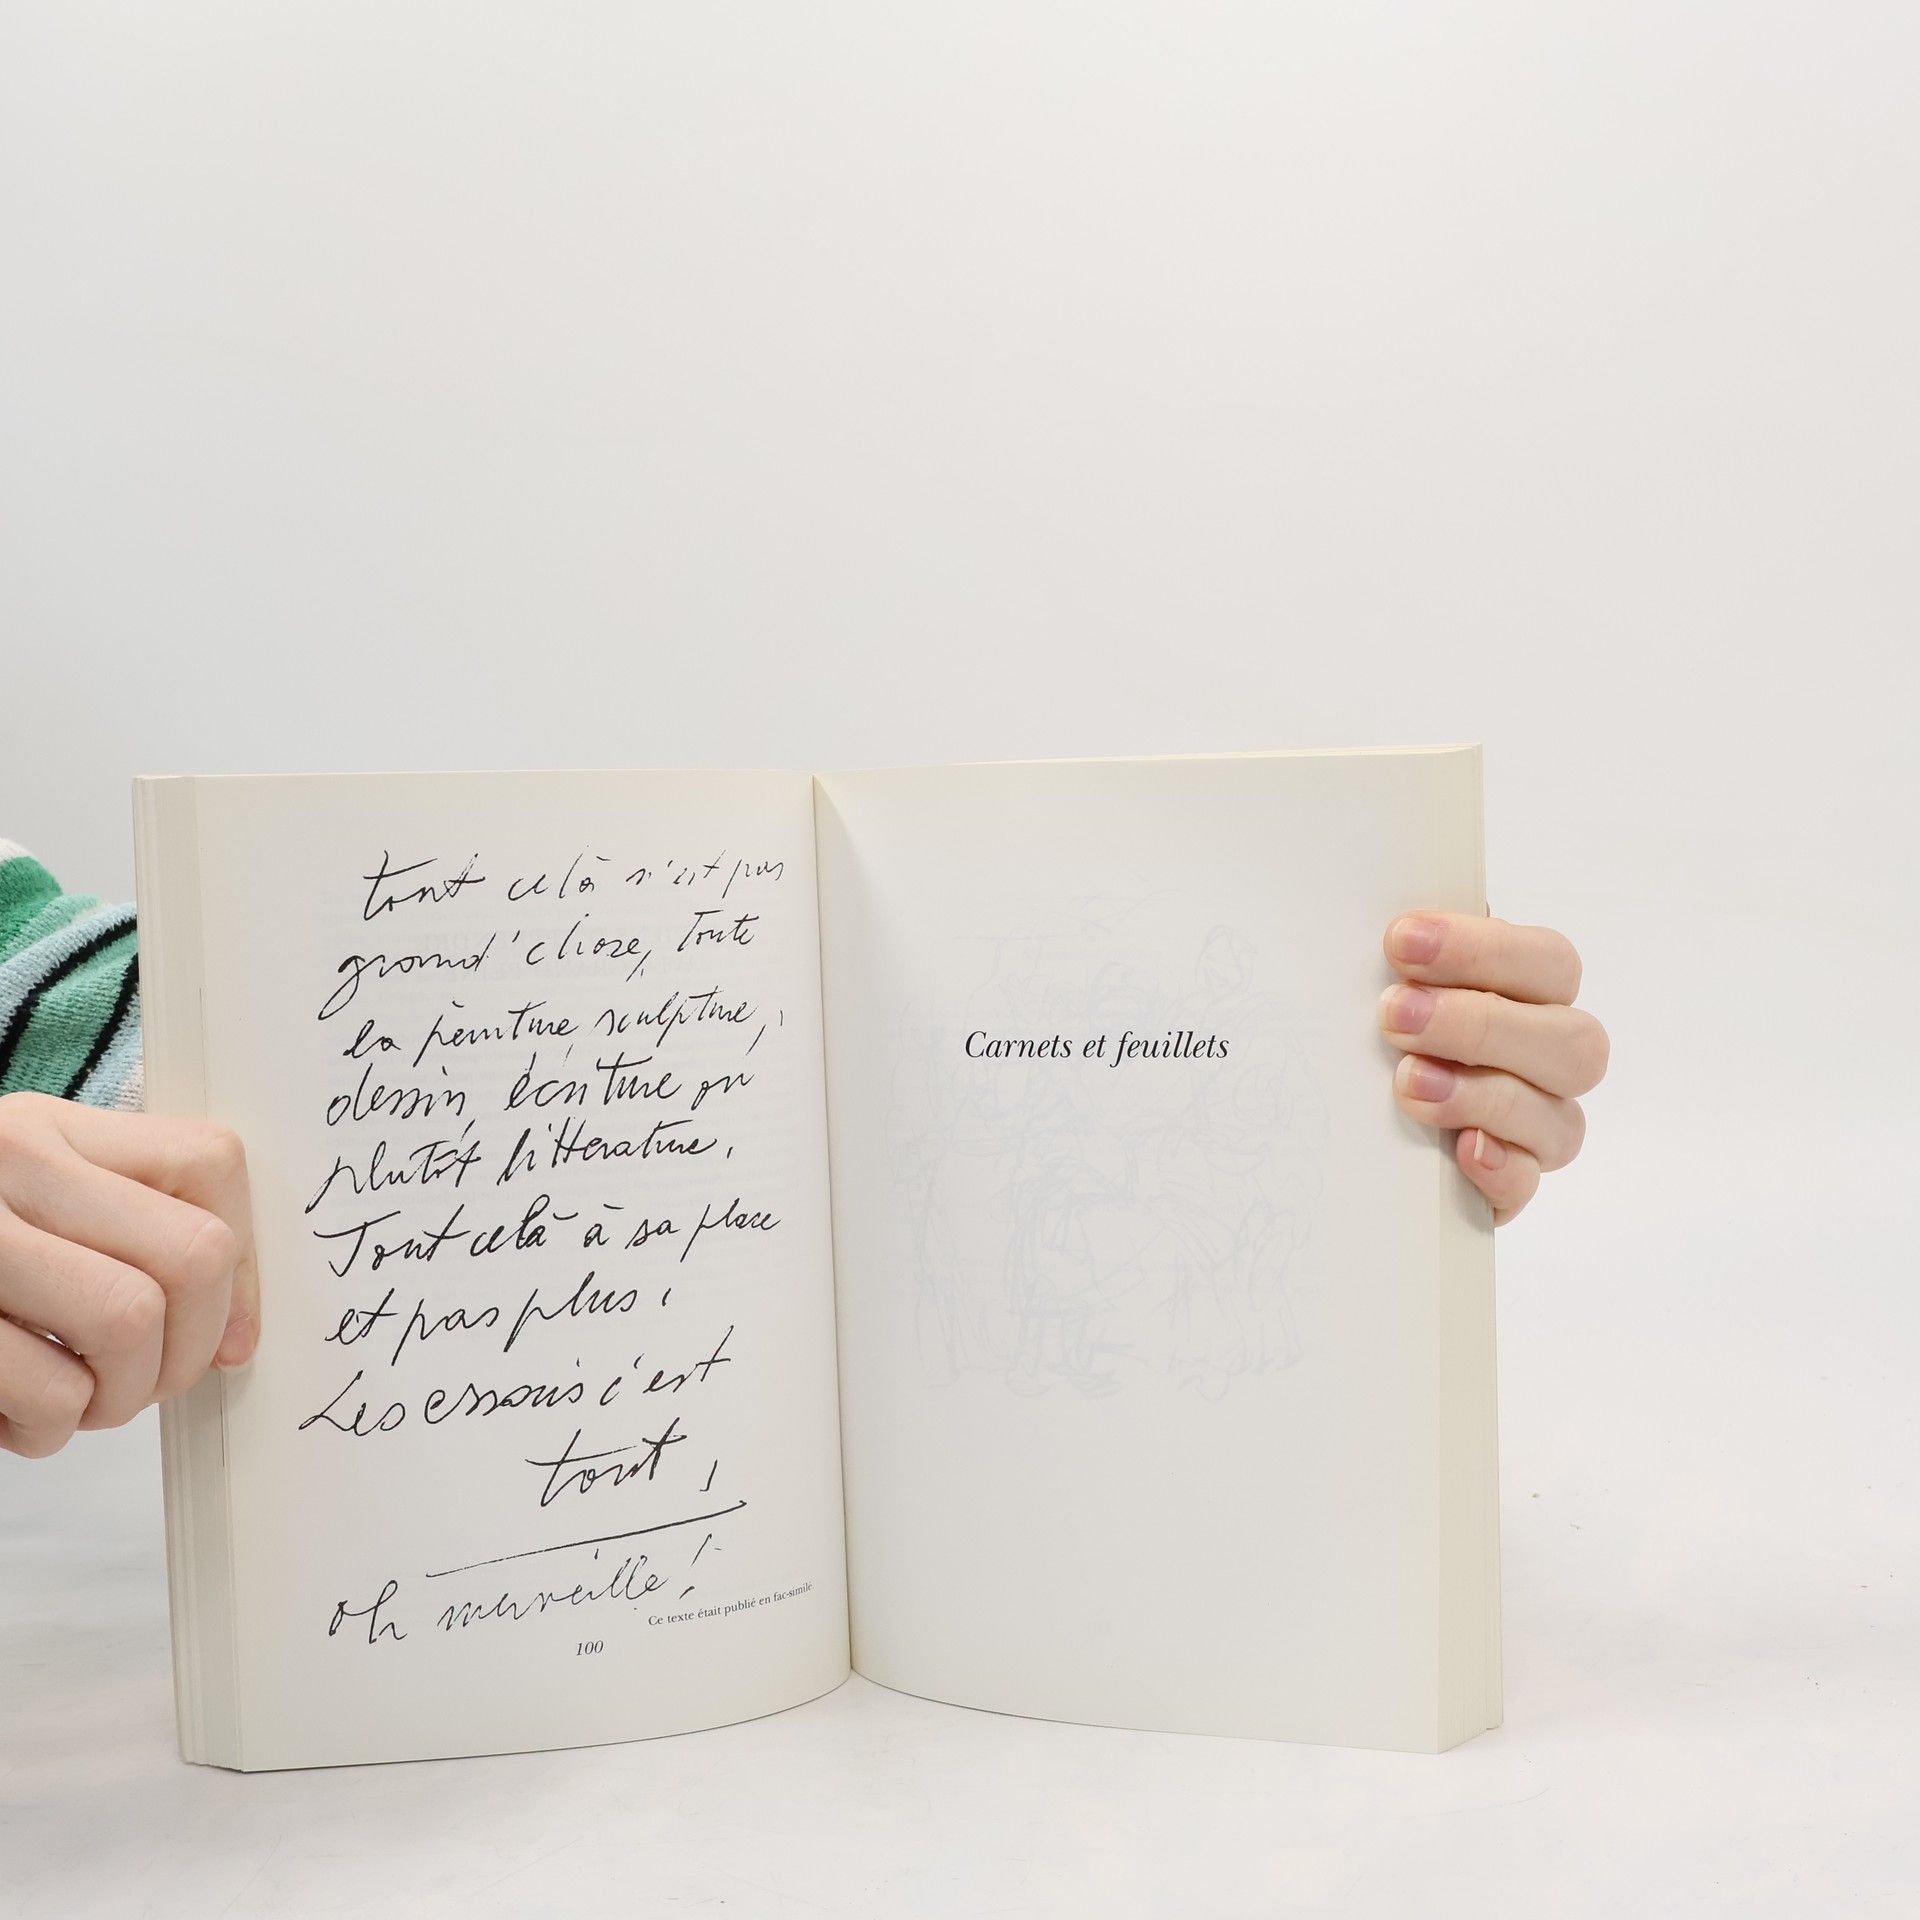 tout celà n'est pas
grand'chose, Toute
la peinture, sculpture,
dessin, écriture ou
plutôt littérature,
Tout celà à sa place
et pas plus,
Les essais c'est
tout,
oh merveille!
Ce texte était publié en fac-similé.
100
Carnets et feuillets